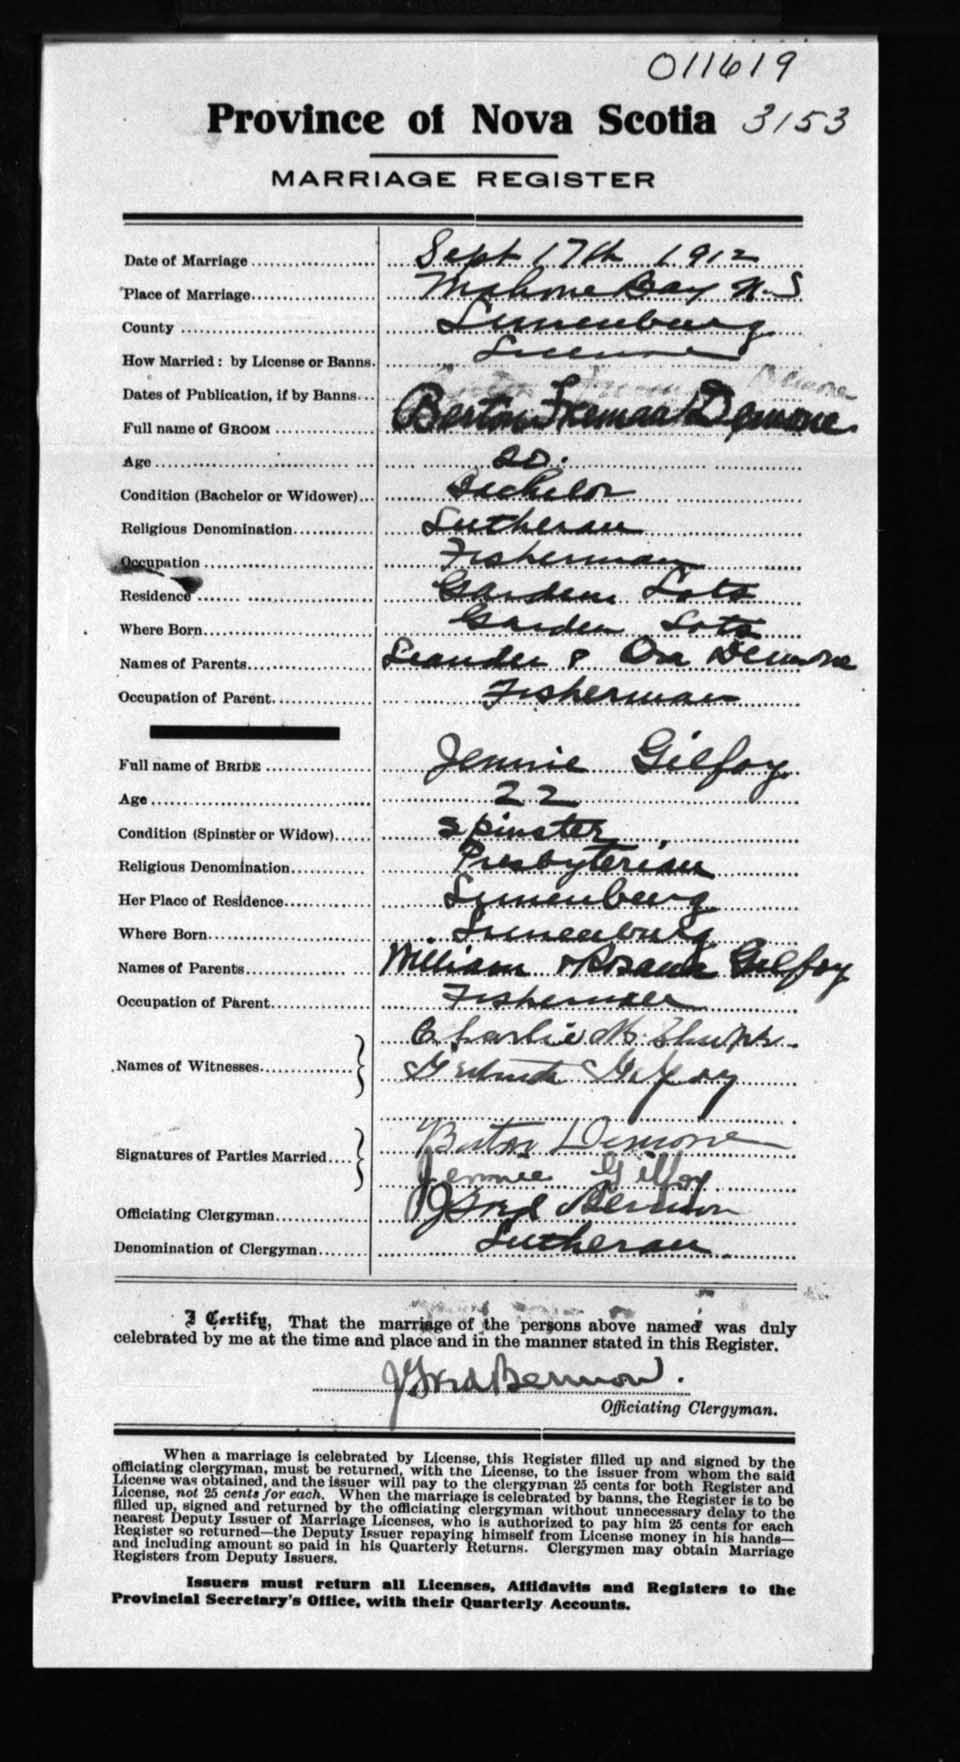 011619
Province of Nova Scotia 3153
MARRIAGE REGISTER
Date of Marriage Sept 17th 1912
Place of Marriage Mahone Bay N.S
County Lunenburg
How Married: by License or Banns. License
Dates of Publication, if by Banns
Full name of GROOM Berton Freman Demone
Age 20.
Condition (Bachelor or Widower) Bachelor
Religious Denomination Lutheran
Occupation Fisherman
Residence Garden Lots
Where Born Garden Lots
Names of Parents Leander & Ora Demone
Occupation of Parent Fisherman
Full name of BRIDE Jennie Gilfoy
Age 22
Condition (Spinster or Widow) Spinster
Religious Denomination Presbyterian
Her Place of Residence Lunenburg
Where Born Lunenburg
Names of Parents William & Gilfoy
Occupation of Parent Fisherman
Charlie
Names of Witnesses Gertrude Gilfoy
Burton Demone
Signatures of Parties Married
Jennie Gilfoy
Officiating Clergyman
Denomination of Clergyman Lutheran
I Certify, That the marriage of the persons above named was duly
celebrated by me at the time and place and in the manner stated in this Register.
Officiating Clergyman.
When a marriage is celebrated by License, this Register filled up and signed by the
officiating clergyman, must be returned, with the License, to the issuer from whom the said
License was obtained, and the issuer will pay to the clergyman 25 cents for both Register and
License, not 25 cents for each. When the marriage is celebrated by banns, the Register is to be
filled up, signed and returned by the officiating clergyman without unnecessary delay to the
nearest Deputy Issuer of Marriage Licenses, who is authorized to pay him 25 cents for each
Register so returned—the Deputy Issuer repaying himself from License money in his hands—
and including amount so paid in his Quarterly Returns. Clergymen may obtain Marriage
Registers from Deputy Issuers.
Issuers must return all Licenses, Affidavits and Registers to the
Provincial Secretary's Office, with their Quarterly Accounts.